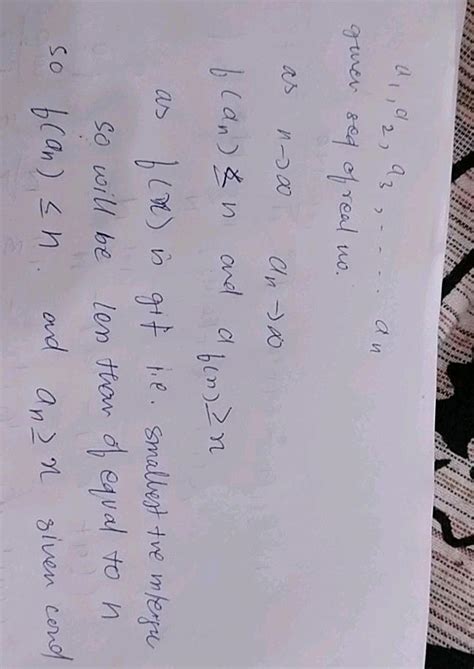 a1, a2, a3, ..... an
given seq of real no.
as n→∞ an→∞
f(an) ≤ n and a f(n) ≥ n
as f(x) is gif i.e. smallest +ve integer
so will be less than of equal to n
so f(an) ≤ n. and an ≥ x given cond